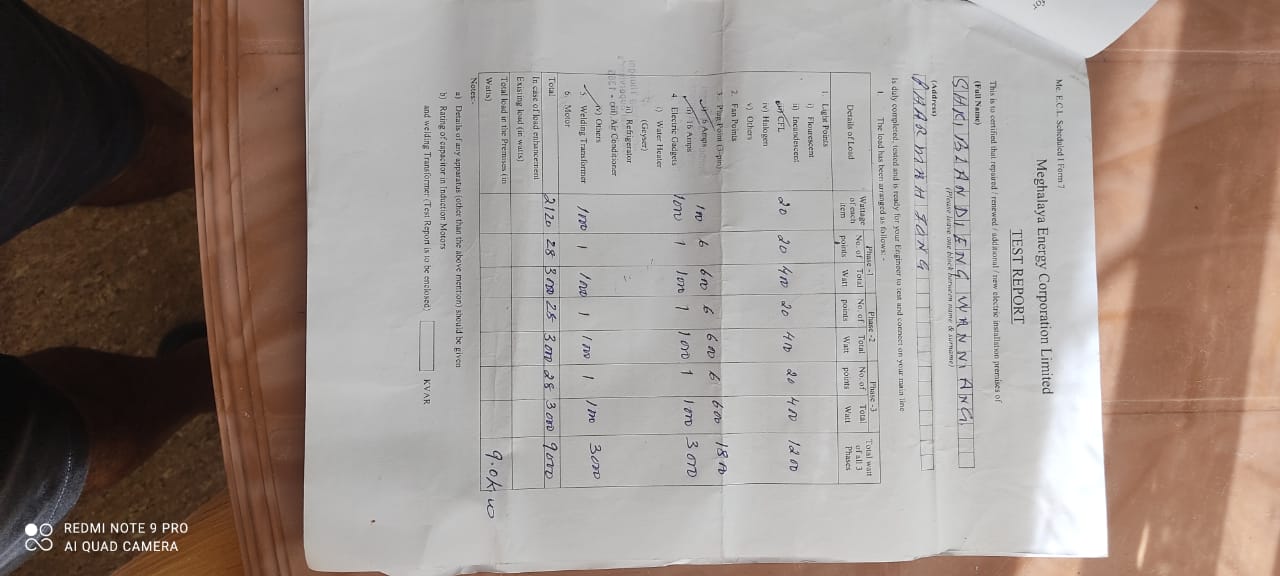 Me. E.C.L. Scheduled 1 Form 7
Meghalaya Energy Corporation Limited
TEST REPORT
This is to certified that repaired / renewed / additional / new electric installation premises of
(Full Name)
SHRI BAANDIENG WANNIANG
(Please leave one block between name & surname)
(Address)
MAH JONG
is duly completed, tested and is ready for your Engineer to test and connect on your main line
1. The load has been arranged as follows:-
Details of Load Wattage of each item Phase -1 Phase -2 Phase -3 Total watt of all 3 Phases
No. of points Total Watt No. of points Total Watt No. of points Total Watt
1. Light Points
i) Flourescent
ii) Incandescent
CFL 20 20 400 20 400 20 400 1200
iv) Halogen
v) Others
2. Fan Points
3. Plug Point (3-pin)
i) 5 Amps 100 6 600 6 600 6 600 1800
ii) 16 Amps 1000 1 1000 1 1000 1 1000 3000
4. Electric Gadgets
i) Water Heater
(Geyser)
ii) Refrigerator
iii) Air Conditioner
iv) Others
5. Welding Transformer 1000 1 1000 1 1000 1 1000 3000
6. Motor
Total 2120 28 3000 28 3000 28 3000 9000
In case of load enhancement
Existing load (in watts)
Total load in the Premises (in Watts) 9.0kw
Notes:-
a) Details of any apparatus (other than the above mention) should be given
b) Rating of capacitor in Induction Motors
and welding Transformer (Test Report is to be enclosed) KVAR
REDMI NOTE 9 PRO
AI QUAD CAMERA